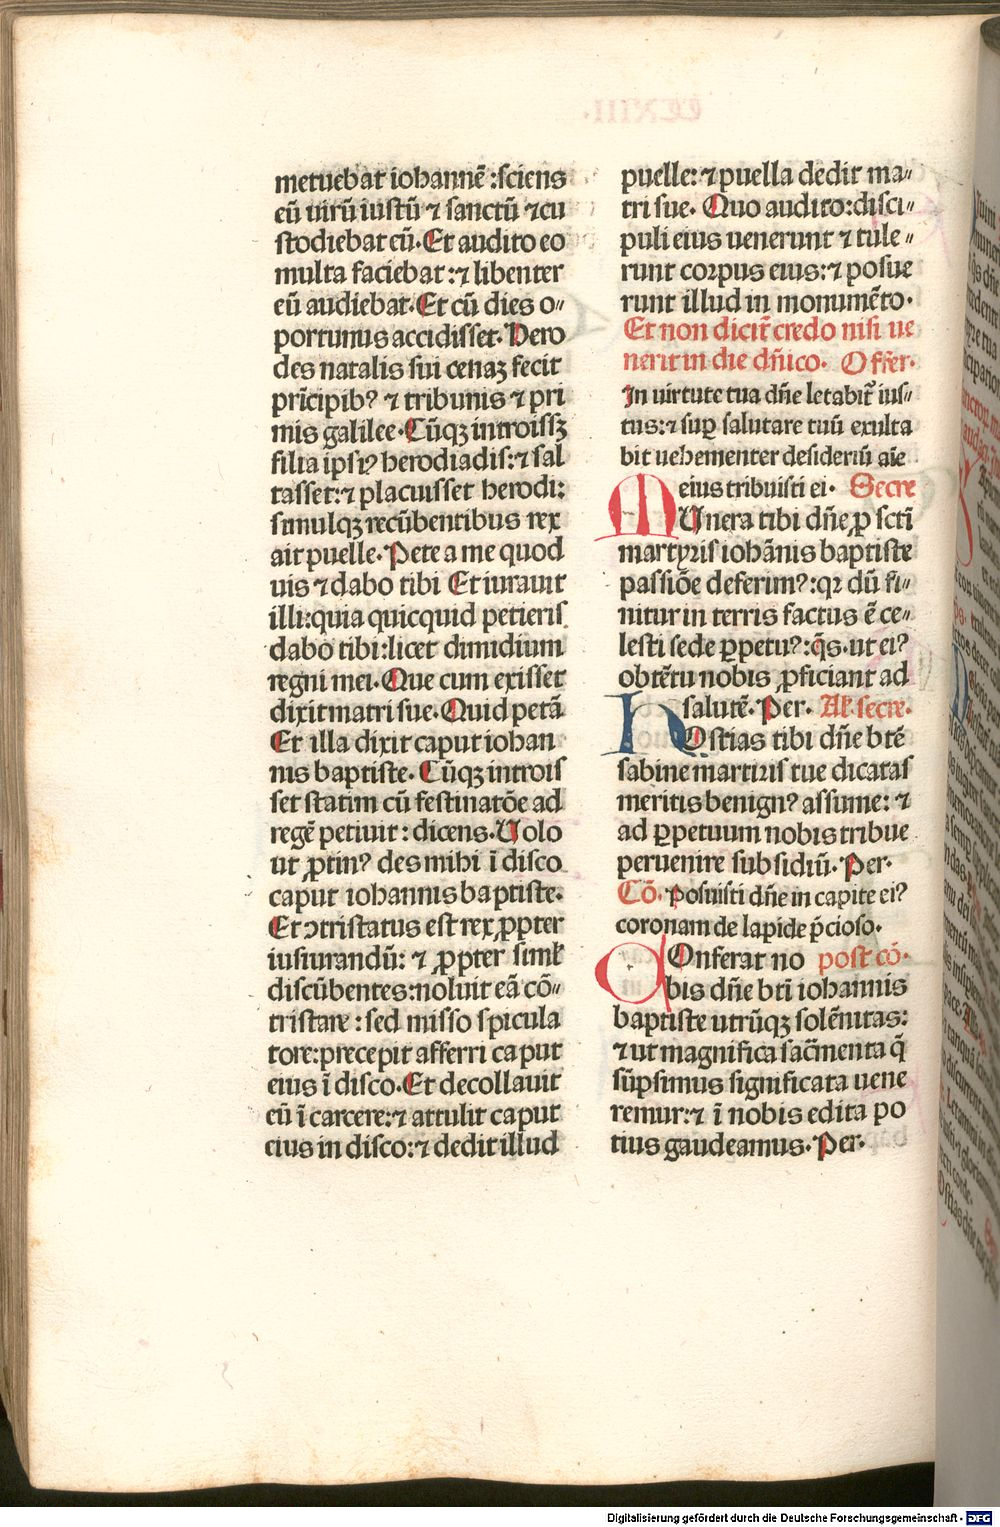 metuebat iohannē :sciens
eū uirū iustū ⁊ sanctū ⁊cu
stodiebat eū. Et audito eo
multa faciebat :⁊ libenter
eū audiebat. Et cū dies o⸗
portunus accidisset. Hero
des natalis sui cenaꝫ fecit
prīcipibꝰ ⁊ tribunis ⁊ pri
mis galilee. Cūqꝫ introissꝫ
filia ipsiꝰ herodiadis:⁊ sal
tasset:⁊ placuisset herodi:
simulqꝫ recūbentibus rex
ait puelle. Pete a me quod
uis ⁊ dabo tibi Et iurauit
illi:quia quicquid petieris
dabo tibi:licet dimidium
regni mei. Que cum exisset
dixit matri sue. Quid petā
Et illa dixit caput iohan
nis baptiste. Cūqꝫ introis
set statim cū festinatōe ad
regē petiuit : dicens. Uolo
ut ꝓtinꝰ des mihi ī disco
caput iohannis baptiste.
Et ↄtristatus est rex ꝓpter
iusiurandū: ⁊ ꝓpter simł
discūbentes:noluit eā cō⸗
tristare : sed misso spicula
tore:precepit afferri caput
eius ī disco. Et decollauit
eū ī carcere:⁊ attulit caput
eius in disco:⁊ dedit illud
puelle: ⁊ puella dedit ma⸗
tri sue. Quo audito:disci⸗
puli eius uenerunt ⁊ tule⸗
runt corpus eius:⁊ posue
runt illud in monumēto.
Et non dicit̄ credo nisi ue
nerit in die dn̄ico. Offer̄.
In uirtute tua dn̄e letabit̄ ius⸗
tus:⁊ suꝑ salutare tuū exulta
bit uehementer desideriū aīe
eius tribuisti ei. Secre
MUnera tibi dn̄e ꝓ scti
martyris iohānis baptiste
passiōe deferimꝰ:qꝛ dū fi⸗
nitur in terris factus ē ce⸗
lesti sede ꝑpetuꝰ:q̄s.ut eiꝰ
obtētu nobis ꝓficiant ad
salutē. Per. Al. secre.
HOstias tibi dn̄e btē
sabine martiris tue dicatas
meritis benignꝰ assume: ⁊
ad ꝑpetuum nobis tribue
peruenire subsidiū. Per.
Cō. Posuisti dn̄e in capite eiꝰ
coronam de lapide p̄cioso.
COnferat no post cō.
bis dn̄e bti iohannis
baptiste utrūqꝫ solēnitas:
⁊ ut magnifica sac̄menta q̄
sūpsimus significata uene
remur:⁊ ī nobis edita po
tius gaudeamus. Per.
Digitalisierung gefördert durch die Deutsche Forschungsgemeinschaft - DFG